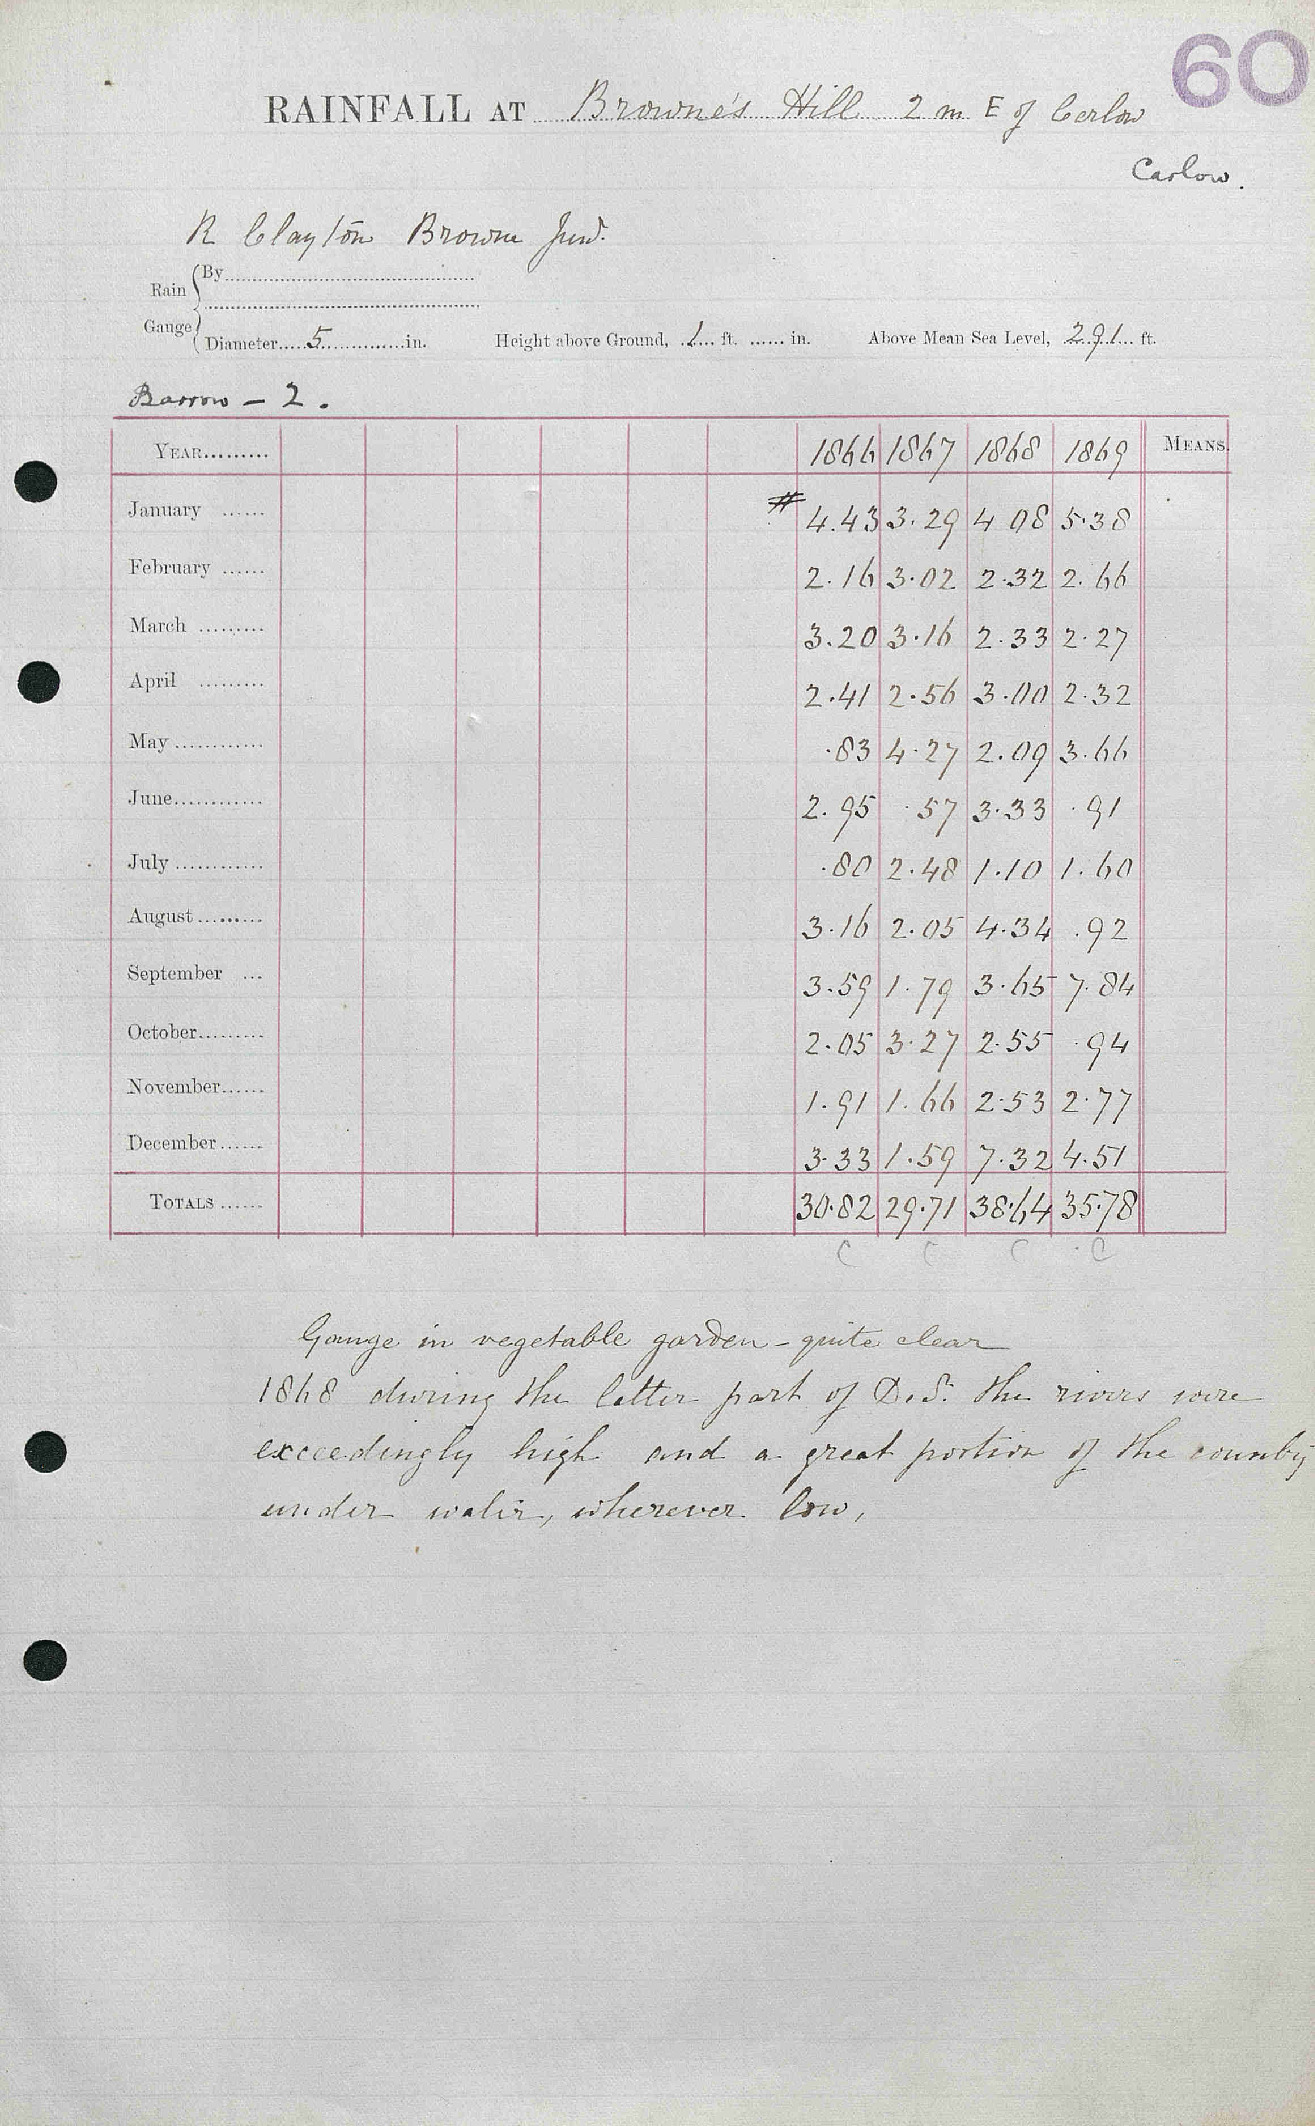 60
RAINFALL AT Browne's Hill 2 m E of Carlow
Carlow.
R Clayton Browne Junr.
Rain Gauge { By
Diameter 5 in. Height above Ground, 1 ft. in. Above Mean Sea Level, 291 ft.
Barrow - 2.
YEAR 1866 1867 1868 1869 MEANS.
January # 4.43 3.29 4 08 5.38
February 2.16 3.02 2.32 2.66
March 3.20 3.16 2.33 2.27
April 2.41 2.56 3.00 2.32
May .83 4.27 2.09 3.66
June 2.95 .57 3.33 .91
July .80 2.48 1.10 1.60
August 3.16 2.05 4.34 .92
September 3.59 1.79 3.65 7.84
October 2.05 3.27 2.55 .94
November 1.91 1.66 2.53 2.77
December 3.33 1.59 7.32 4.51
TOTALS 30.82 29.71 38.64 35.78
C C C C
Gauge in vegetable garden - quite clear
1868 during the latter part of Dec. the rivers were
exceedingly high and a great portion of the country
under water, wherever low,